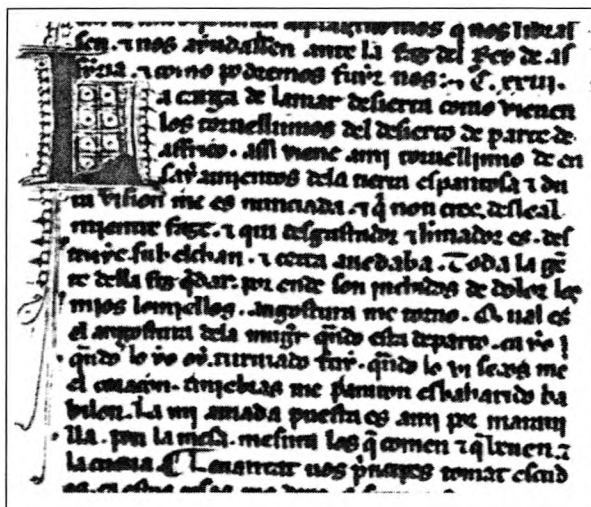 q nos libras
sen. ⁊ nos ayudassen ante la faz del Rey de as
siria. ⁊ como podremos fuir nos: C. xxiii.
La carga de lamar desierta como vienen
los toruellinnos del desierto de parte de
affrico. assi viene ami toruellinno de en
sayamientos dela tierra espantosa ⁊ du
ra vision me es nunciada. ⁊ q̃ non cree. desleal
mientre faze. ⁊ qui desgastador ⁊ es. des
truye. sub elcham. ⁊ cerca amedaba. Toda la gẽ
te della fiz q̃dar. por ende son inchidos de dolor los
mios lomiellos. angostura me tomo. Qual es
el angostura dela mugr̃ q̃ndo esta departo.
q̃ndo lo yo oy. turuiado fuy. q̃ndo lo vi me
el coraçon. tiniebras me ba
bilon. La mi amada puesta es ami por maraui
lla. pon la mesa. mesura los q̃ comen ⁊ q̃ beuen. ⁊
la cueua. ¶ Leuantat uos p̃ncipes tomat escud